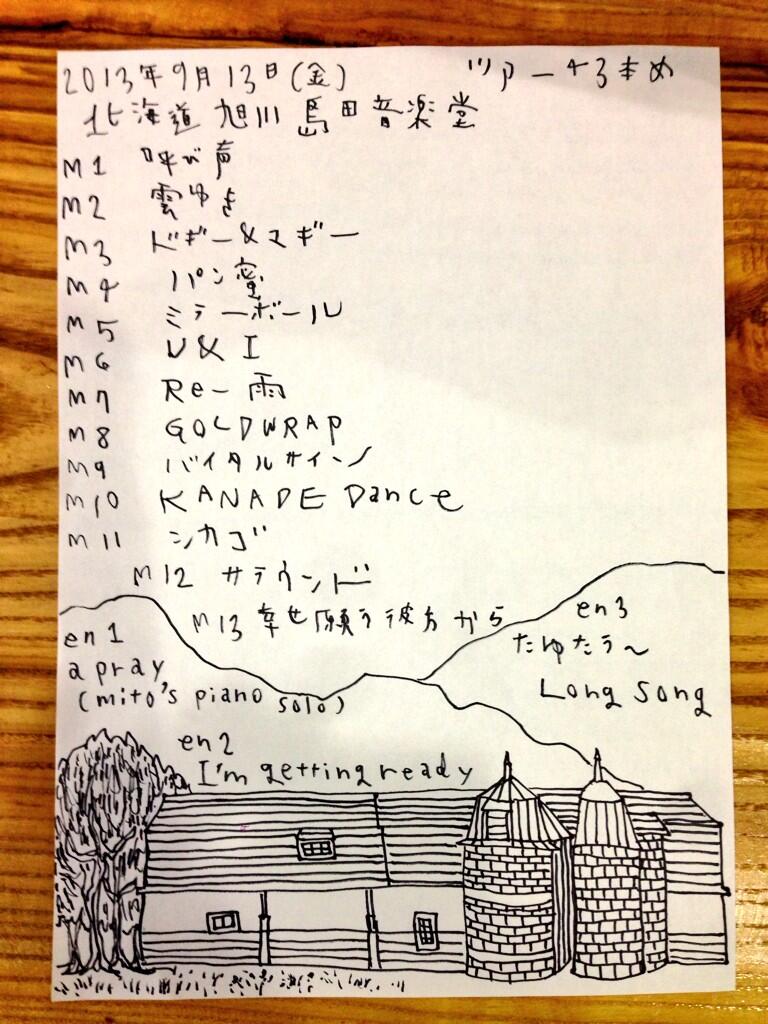 2013年9月13日(金) ツアー43本め
北海道 旭川 島田音楽堂
M1 呼び声
M2 雲ゆき
M3 ドギー&マギー
M4 パン蜜
M5 ミラーボール
M6 U&I
M7 Re-雨
M8 GOLDWRAP
M9 バイタルサイン
M10 KANADE Dance
M11 シカゴ
M12 サラウンド
M13 幸せ願う彼方から
en1
a pray
(mito's piano solo)
en2
I'm getting ready
en3
たゆたう〜
Long Song